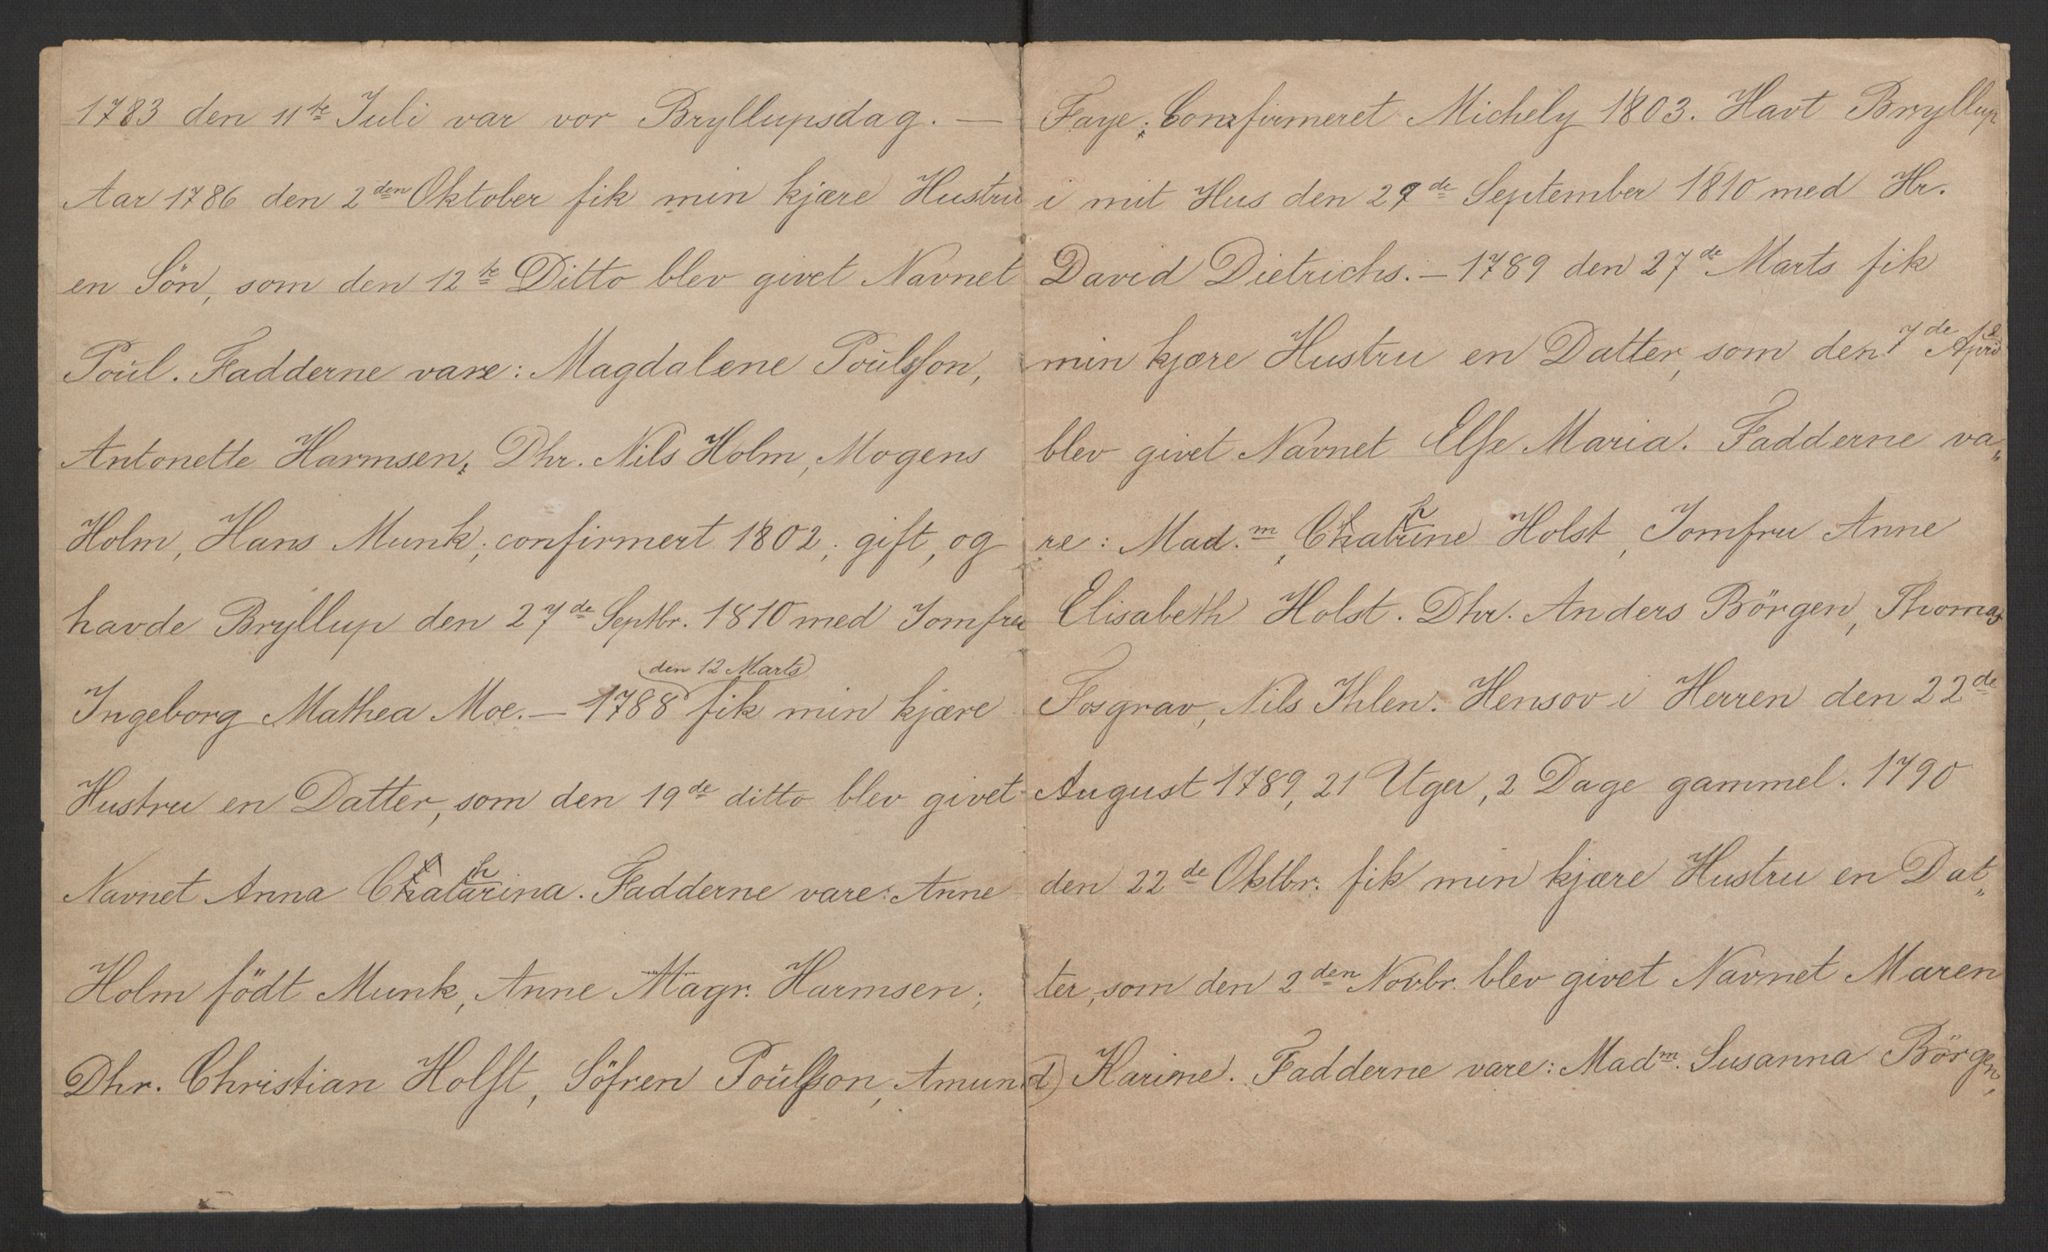 1783 den 11te Juli var vor Bryllupsdag. —
Aar 1786 den 2den Oktober fik min kjære Hustru
en Sön, som den 12te Ditto blev givet Navnet
Poúl. Fadderne vare: Magdalene Poúlsson,
Antonette Harmsen, Dhr. Nils Holm, Mogens
Holm, Hans Munk; confirmert 1802; gift, og
havde Bryllup den 27de Septbr. 1810 med Jomfru
Ingeborg Mathea Moe. — 1788 den 12 Marts fik min kjære
Hustru en Datter, som den 19de ditto blev givet
Navnet Anna Catharina. Fadderne vare: Anne
Holm födt Munk, Anne Magr. Harmsen;
Dhr. Christian Holst, Söfren Poúlsson, Amund
Faye; Confirmeret Michely 1803. Havt Bryllup
i mit Hus den 27de September 1810 med Hr.
David Dietrichs. — 1789 den 27de Marts fik
min kjære Hustru en Datter, som den 7de April
blev givet Navnet Else Maria. Fadderne va„
re: Mad.m Cathrine Holst, Jomfru Anne
Elisabeth Holst. Dhr. Anders Börgen, Thomas
Fosgrav, Nils Ihlen. Hensov i Herren den 22de
August 1789, 21 Uger, 2 Dage gammel. 1790
den 22de Oktbr. fik min kjære Hustru en Dat„
ter, som den 2den Novbr. blev givet Navnet Maren
Karine. Fadderne vare: Madm. Susanna Börgen,